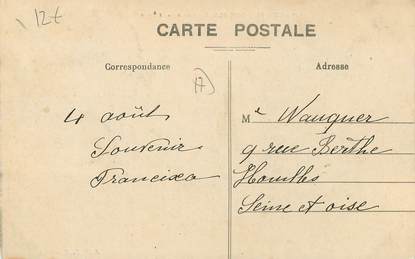 12€
CARTE POSTALE
Correspondance
Adresse
17
4 août
Souvenir
Me Wauquer
9 rue Berthe
Houilles
Seine et oise